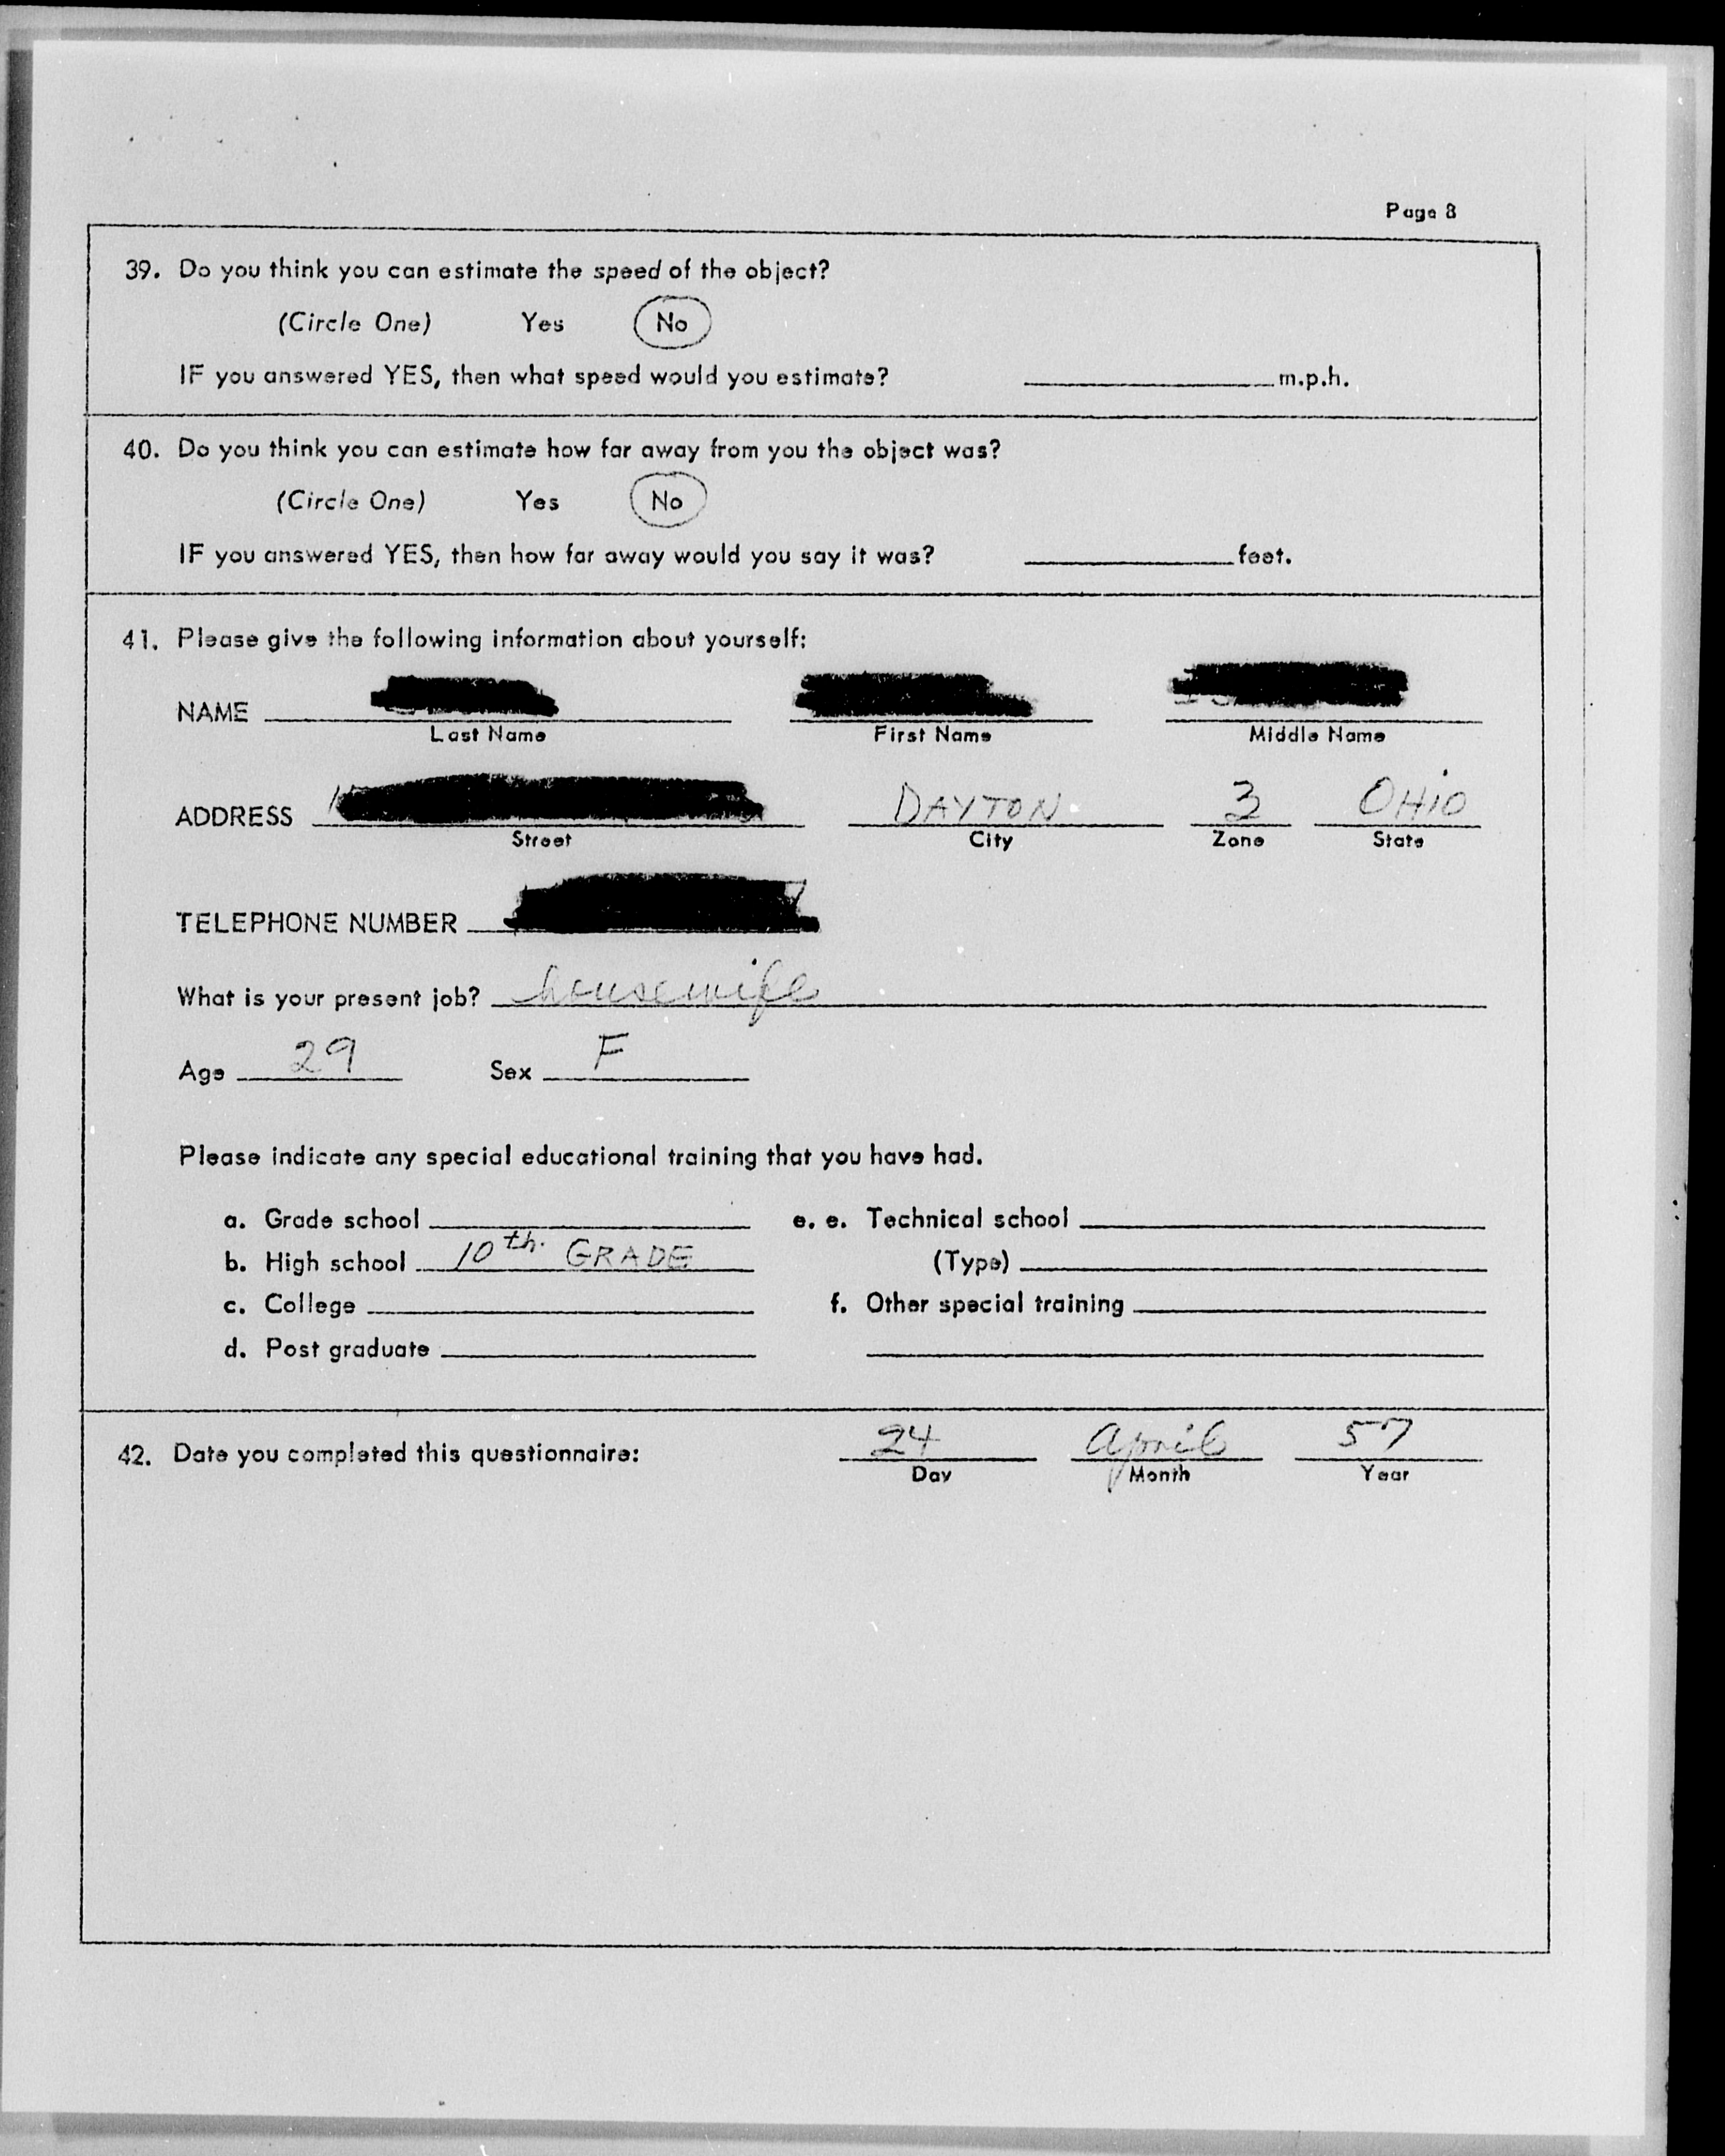 Page 8
39. Do you think you can estimate the speed of the object?
(Circle One) Yes No
IF you answered YES, then what speed would you estimate? m.p.h.
40. Do you think you can estimate how far away from you the object was?
(Circle One) Yes No
IF you answered YES, then how far away would you say it was? feet.
41. Please give the following information about yourself:
NAME
Last Name First Name Middle Name
ADDRESS DAYTON 3 OHIO
Street City Zone State
TELEPHONE NUMBER
What is your present job? housewife
Age 29 Sex F
Please indicate any special educational training that you have had.
a. Grade school e. e. Technical school
b. High school 10th. GRADE (Type)
c. College f. Other special training
d. Post graduate
42. Date you completed this questionnaire: 24 April 57
Day Month Year